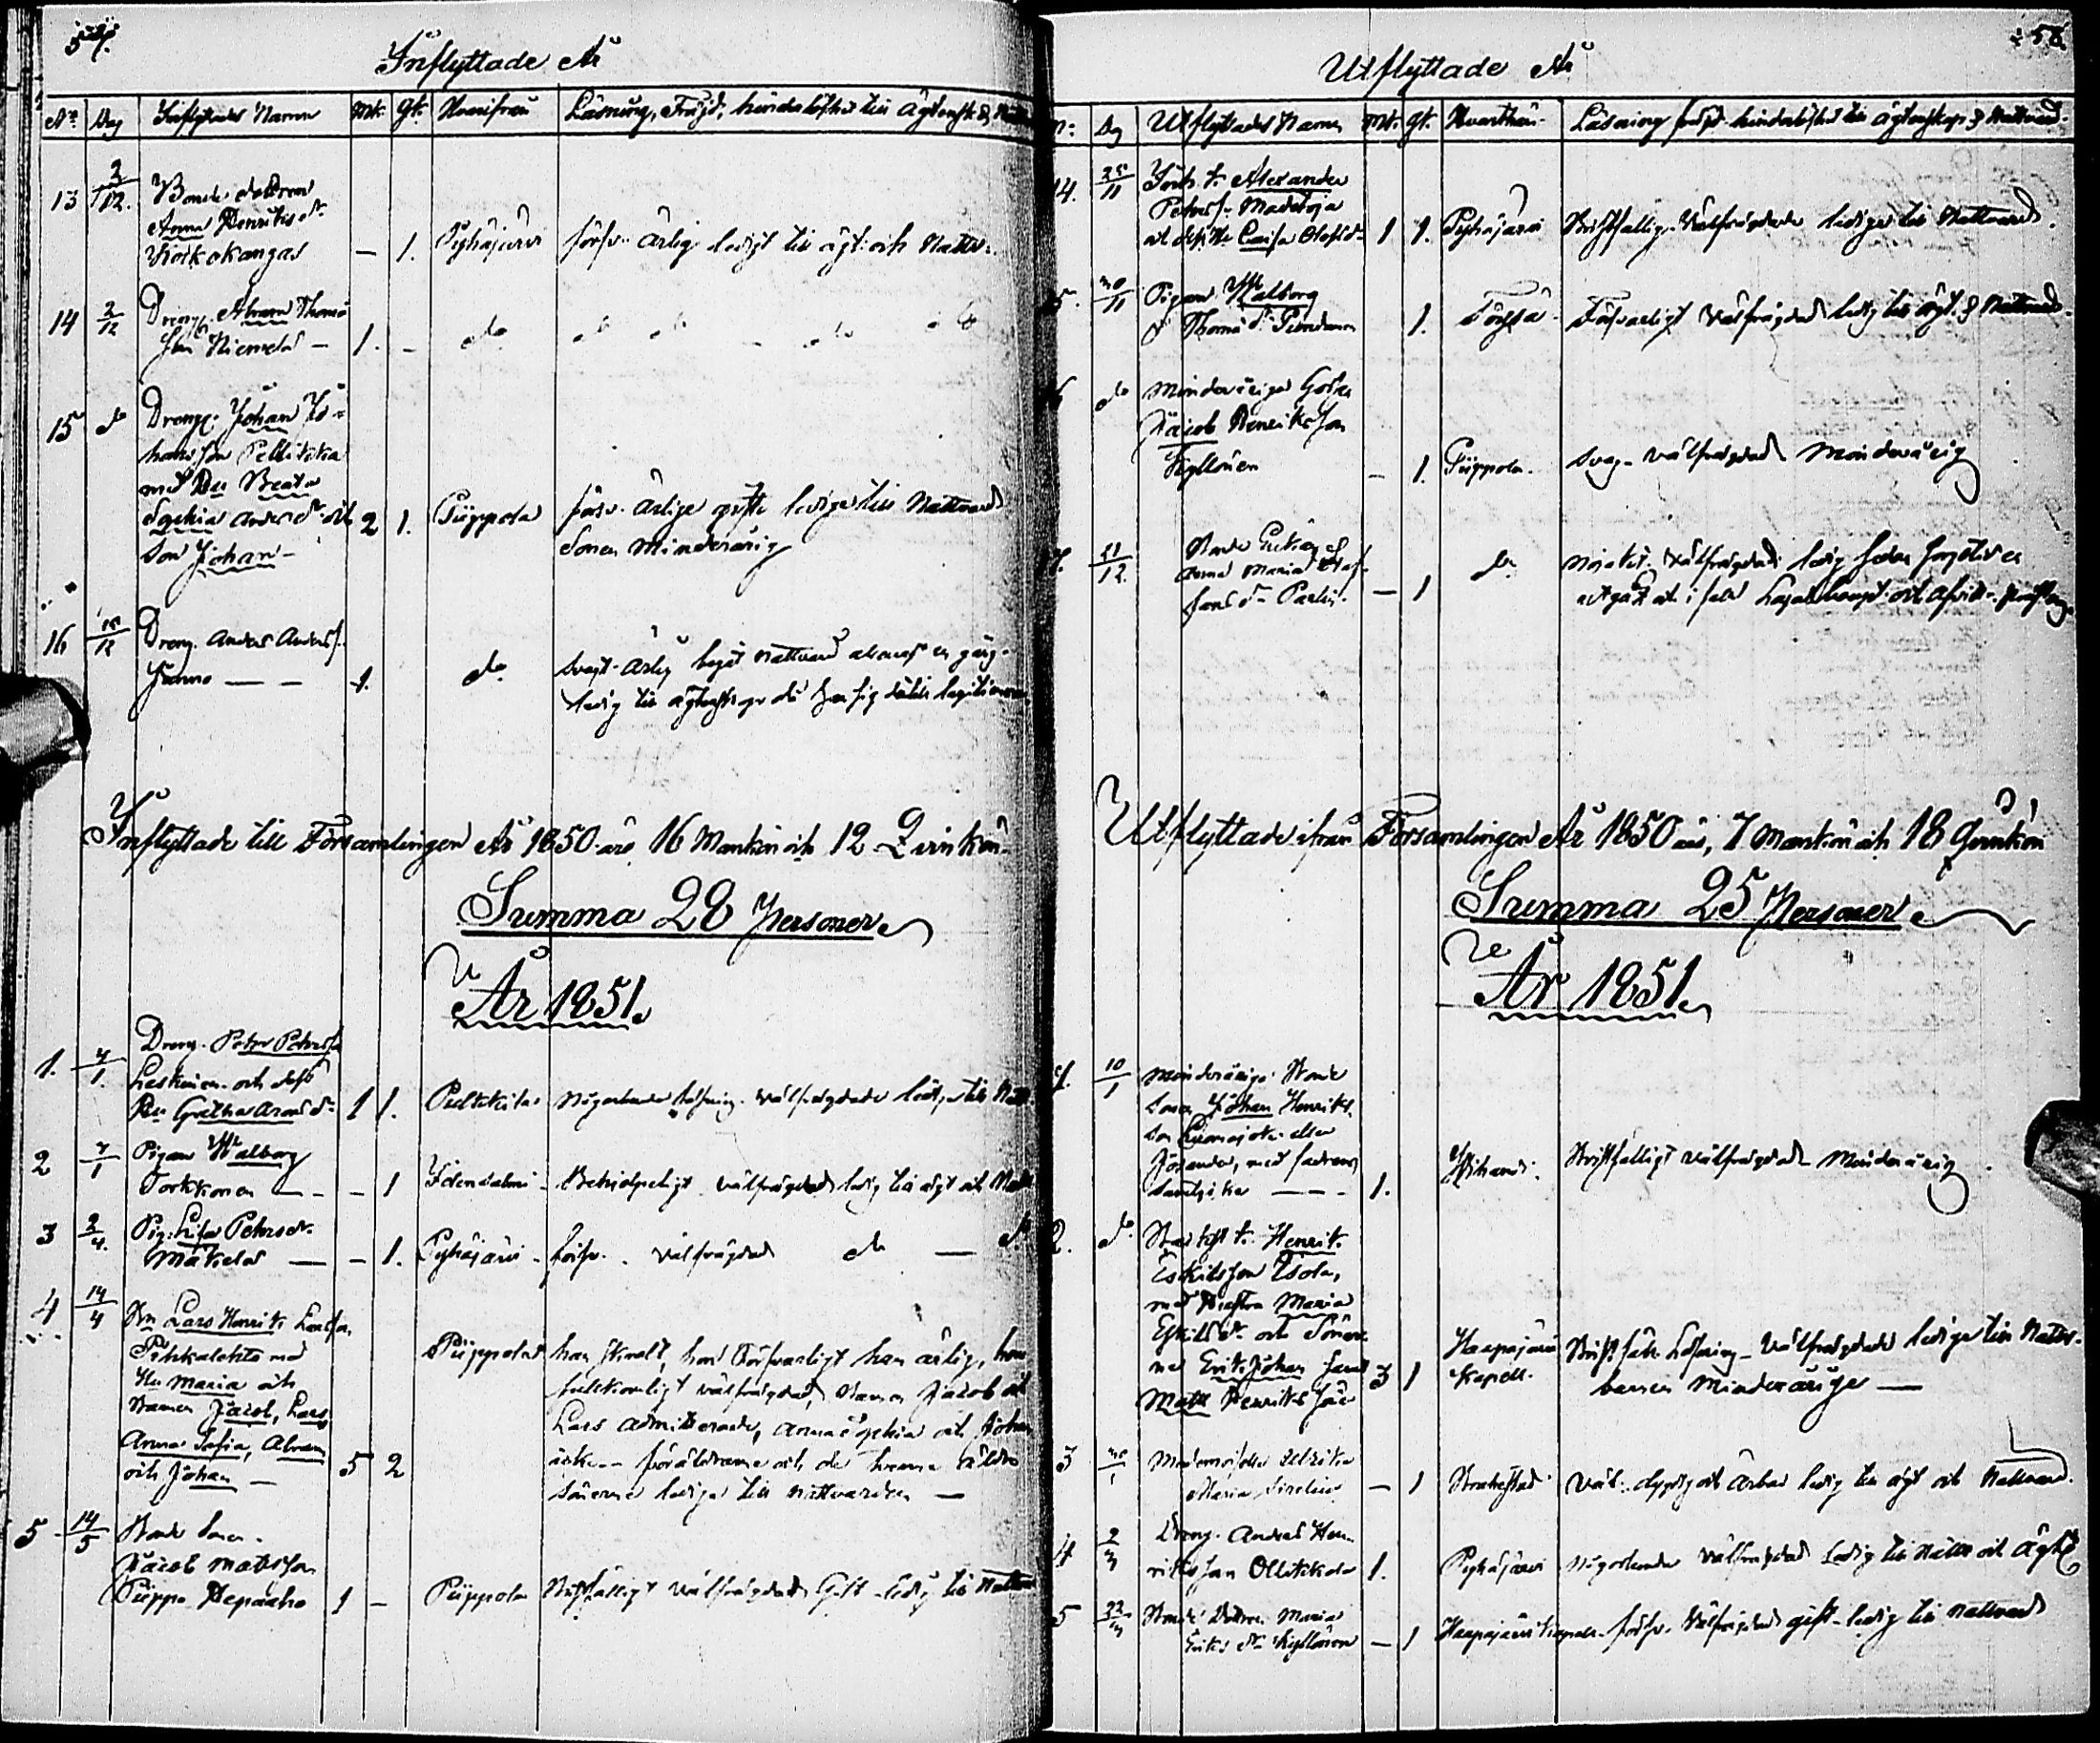 57.
Inflyttade År
No Dag Inflyttades Namn Mk. Qk. Hvarifrån Läsning, Frejd, hinderlöshet till Ägtensk. &
13 2/12. Bonde dottren
Anna Henriksdr
Koikokangas — 1. Pyhäjärvi försv. ärlig ledigt till ägt: och Nattv:.
14 2/12 Dreng. Abram Thoma
Son Niemelä — 1. - do do do do
15 do Dreng. Johan Jo-
hansson Pellikka
med Hu Beata
Sophia Anders dr och 2 1. Piippola försv. ärlige gifte ledige till Nattvard
Son Johan — Sonen Minderårig
16 15/12 Dreng. Anders Anders s.
— — 1. do svagt. ärlig begåt nattvard
ledig till ägtenskap
Inflyttade till Församlingen År 1850 äro 16 Mankön och 12 Qvinkön
Summa 28 Personer
År 1851.
1. 7/1. Dreng. Peter Peters son
Leskinen och dess
Hu Gretha Arons dr 1 1. Pulkkila Någorlunda läsning. välfrägdade ledige till
2 7/1 Pigan Walborg
Torkkonen — - - 1 Idensalmi - Behjelpeligt välfrägdad ledig till ägt och
3 2/4. Pig. Lisa Petersdr
Mäkelä — - 1. Pyhäjärvi - försv. välfrägdad do — do
4 14/4 Bn Lars Henrik Larsson
Pihkalehto med
Hu Maria och
Barnen Jacob, Lars
Anna Sofia, Abram
och Johan — 5 2 Piippola han skralt, hon försvarligt han ärlig, hon
fullkomligt välfrägdad, Barnen Jacob och
Lars admitterade, Anna Sophia och Johan
icke — föräldrarne och de tvenne äldre
sönerne ledige till nattvarden —
5 14/5 Bonde Sonen
Jacob Matts son
Piippo Hepoaho 1 - Piippola Skriftfälligt välfrägdad Gift ledig till
58
Utflyttade År
No: Dag Utflyttades Namn Mk. Qk. Hvarthän. Läsning frägd hinderlöshet till Ägtenskap & Nattvard.
14. 25/11 Alexander
Peterss. Madetoja
och dess Hu Caisa Olofsdr 1 1. Pyhäjärvi Skriftfällige Välfrägdade ledige till Nattvard.
15. 30/11 Pigan Walborg
Thoma dr 1. Försvarligt Välfrägdad ledig till ägt. & Nattvard.
16 do Minderårige Gossen
Jacob Henriksson
Kyllönen - 1. Piippola. Svag. Välfrägdad Minderårig
17. 11/12 Bonde Enkan
Anna Maria
— 1 do Välfrägdad ledig
Utflyttade ifrån Församlingen År 1850 äro, 7 Mankön och 18 Qvinkön
Summa 25 Personer
År 1851.
1. 10/1 Minderårige Bonde
Sonen Johan Henriks
son Luomajoki eller
med fadrens
samtycke — — 1. Vihandi. Skriftfälligt välfrägdad Minderårig
2. do Henrik
Eskilsson Isola,
med Hustru Maria
Eskils dr och Söner-
ne Erik Johan samt
Matts Henriks Söner 3 1 Haapajärvi Kapell. Läsning. Välfrägdade ledige till Nattv.
barnen Minderårige —
3 Mademoiselle Ulrika
Maria - 1 Brahestad Väl. dygdig och ärbar ledig till ägt och Nattvard.
4 2/3 Dreng. Anders Hen-
riks son Ollikkala 1. Pyhäjärvi Någorlunda välfrägdad Ledig till Nattv och Ägt
5 22/3 Bonde dottren Maria
Eriks dr Kyllönen — 1 Haapajärvi Kapell. försv. Välfrägdad gift ledig till Nattvard